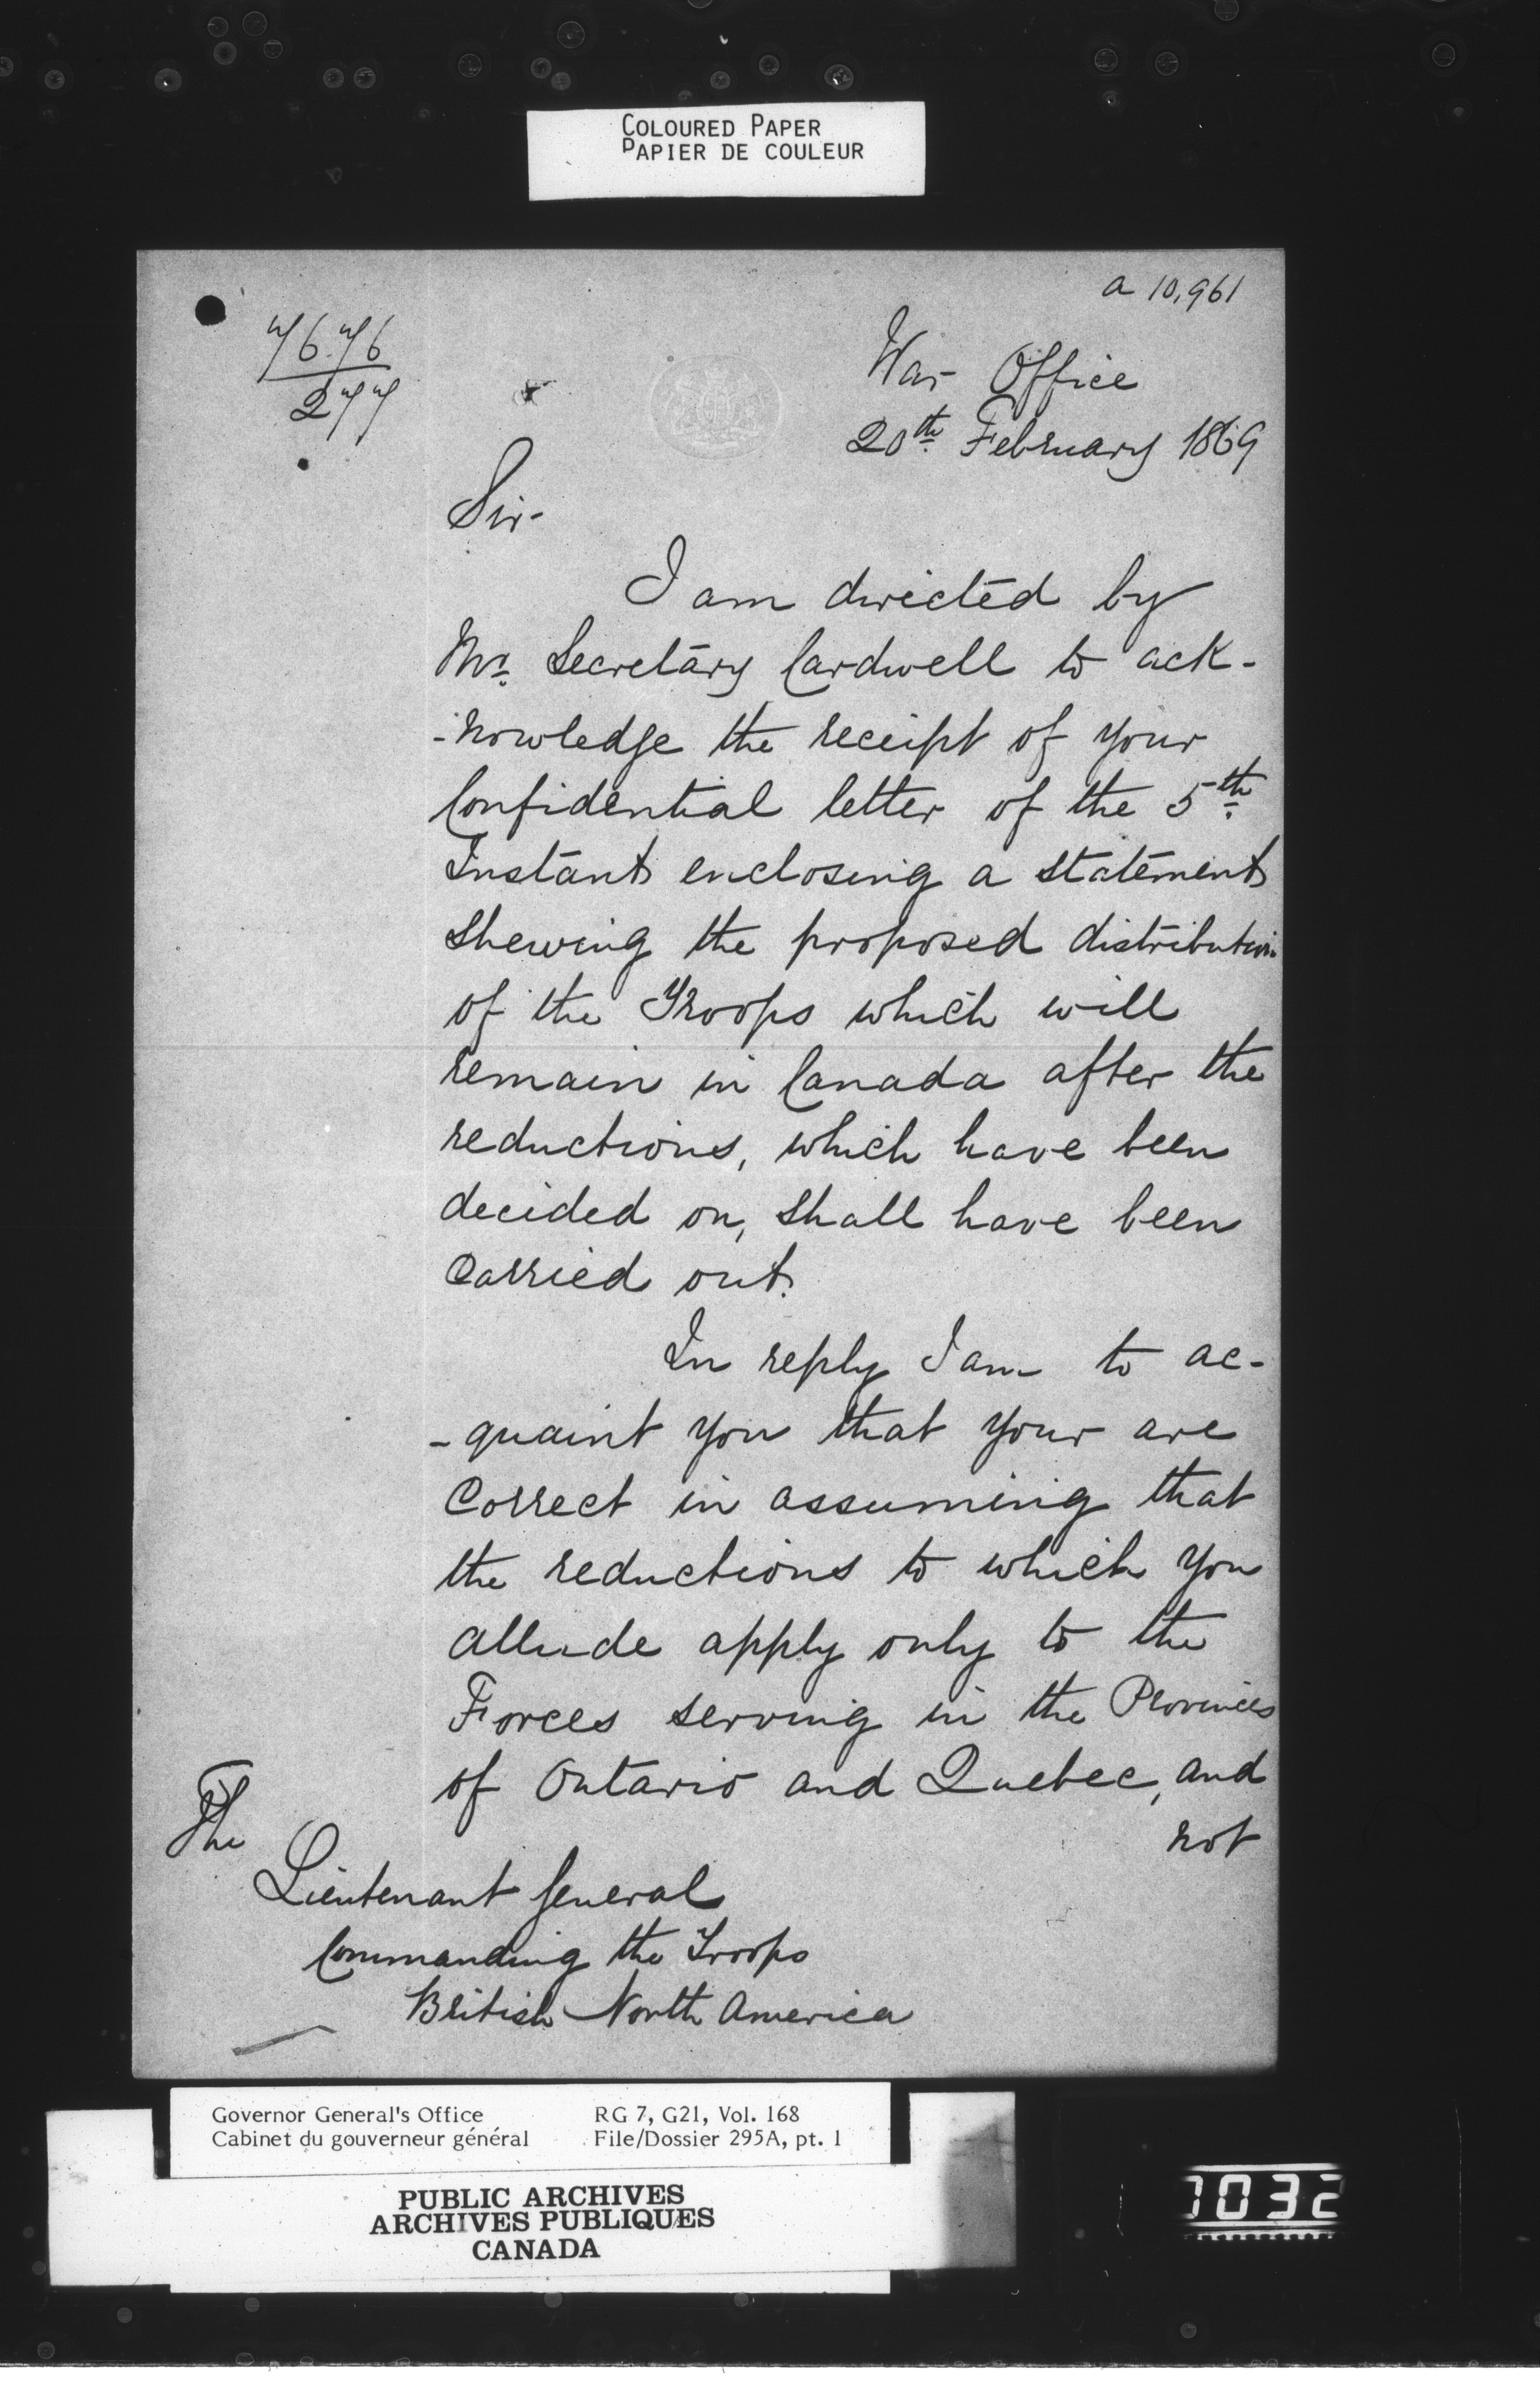 COLOURED PAPER
PAPIER DE COULEUR
a 10,961
76.76
277
War Office
20th February 1869
Sir-
I am directed by
Mr. Secretary Cardwell to ack-
-nowledge the receipt of your
Confidential letter of the 5th
Instant enclosing a statement
shewing the proposed distribution
of the Troops which will
remain in Canada after the
reductions, which have been
decided on, shall have been
Carried out.
In reply I am to ac-
-quaint you that your are
Correct in assuming that
the reductions to which you
allude apply only to the
Forces serving in the Provinces
of Ontario and Quebec, and
not
The
Lieutenant General
Commanding the Troops
British North America
Governor General's Office
Cabinet du gouverneur général
RG 7, G21, Vol. 168
File/Dossier 295A, pt. 1
PUBLIC ARCHIVES
ARCHIVES PUBLIQUES
CANADA
1032